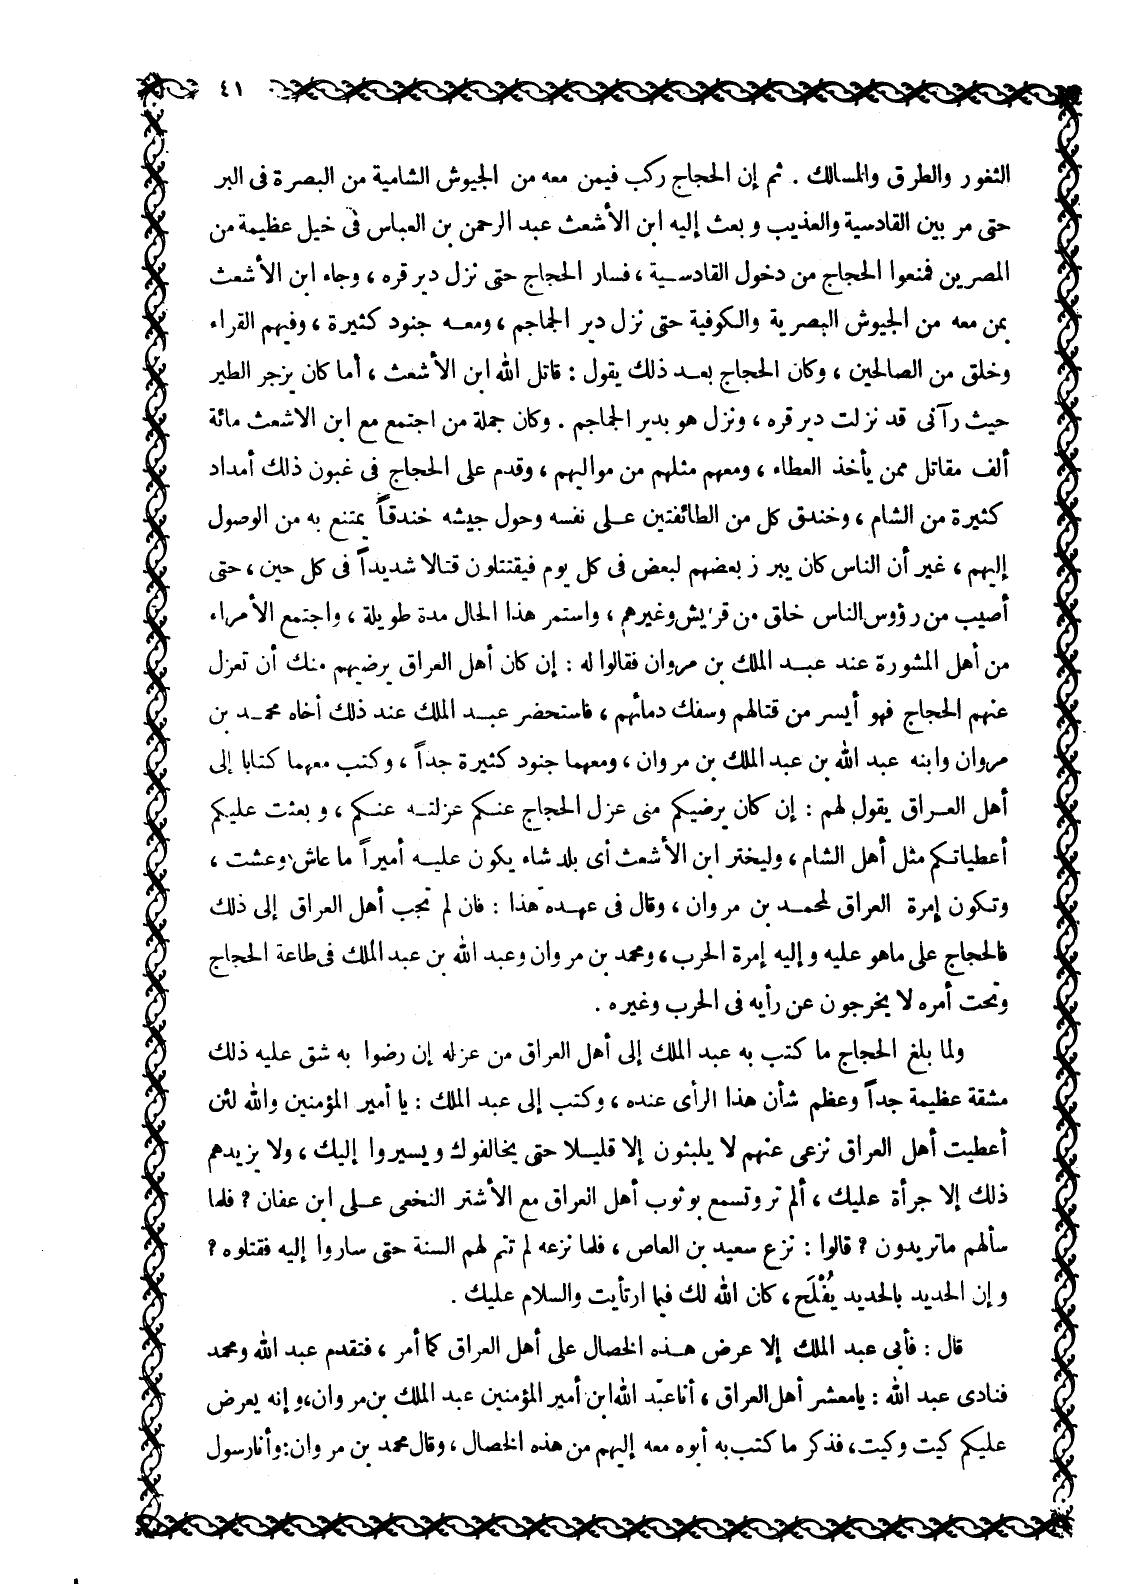 ٤١
الثغور والطرق والمسالك . ثم إن الحجاج ركب فيمن معه من الجيوش الشامية من البصرة فى البر
حتى مر بين القادسية والعذيب وبعث إليه ابن الأشعث عبد الرحمن بن العباس فى خيل عظيمة من
المصرين فمنعوا الحجاج من دخول القادسية ، فسار الحجاج حتى نزل دير قره ، وجاء ابن الأشعث
بمن معه من الجيوش البصرية والكوفية حتى نزل دير الجماجم ، ومعه جنود كثيرة ، وفيهم القراء
وخلق من الصالحين ، وكان الحجاج بعد ذلك يقول : قاتل الله ابن الأشعث ، أما كان يزجر الطير
حيث رآنى قد نزلت دير قره ، ونزل هو بدير الجماجم . وكان جملة من اجتمع مع ابن الاشعث مائة
ألف مقاتل ممن يأخذ العطاء ، ومعهم مثلهم من مواليهم ، وقدم على الحجاج فى غبون ذلك أمداد
كثيرة من الشام ، وخندق كل من الطائفتين على نفسه وحول جيشه خندقاً يمتنع به من الوصول
إليهم ، غير أن الناس كان يبرز بعضهم لبعض فى كل يوم فيقتتلون قتالا شديداً فى كل حين ، حتى
أصيب من رؤوس الناس خلق من قريش وغيرهم ، واستمر هذا الحال مدة طويلة ، واجتمع الأمراء
من أهل المشورة عند عبد الملك بن مروان فقالوا له : إن كان أهل العراق يرضيهم منك أن تعزل
عنهم الحجاج فهو أيسر من قتالهم وسفك دمائهم ، فاستحضر عبد الملك عند ذلك أخاه محمد بن
مروان وابنه عبد الله بن عبد الملك بن مروان ، ومعهما جنود كثيرة جداً ، وكتب معهما كتابا إلى
أهل العراق يقول لهم : إن كان يرضيكم منى عزل الحجاج عنكم عزلته عنكم ، وبعثت عليكم
أعطياتكم مثل أهل الشام ، وليختر ابن الأشعث أى بلد شاء يكون عليه أميراً ما عاش وعشت ،
وتكون إمرة العراق لمحمد بن مروان ، وقال فى عهده هذا : فان لم تجب أهل العراق إلى ذلك
فالحجاج على ماهو عليه وإليه إمرة الحرب ، ومحمد بن مروان وعبد الله بن عبد الملك فى طاعة الحجاج
وتحت أمره لا يخرجون عن رأيه فى الحرب وغيره .
ولما بلغ الحجاج ما كتب به عبد الملك إلى أهل العراق من عزله إن رضوا به شق عليه ذلك
مشقة عظيمة جداً وعظم شأن هذا الرأى عنده ، وكتب إلى عبد الملك : يا أمير المؤمنين والله لئن
أعطيت أهل العراق نزعى عنهم لا يلبثون إلا قليلا حتى يخالفوك ويسيروا إليك ، ولا يزيدهم
ذلك إلا جرأة عليك ، ألم تر وتسمع بوثوب أهل العراق مع الأشتر النخعى على ابن عفان ؟ فلما
سألهم ماتريدون ؟ قالوا : نزع سعيد بن العاص ، فلما نزعه لم تتم لهم السنة حتى ساروا إليه فقتلوه ؟
وإن الحديد بالحديد يُفْلَح ، كان الله لك فيما ارتأيت والسلام عليك .
قال : فأبى عبد الملك إلا عرض هذه الخصال على أهل العراق كما أمر ، فتقدم عبد الله ومحمد
فنادى عبد الله : يامعشر أهل العراق ، أنا عبد الله ابن أمير المؤمنين عبد الملك بن مروان ، وإنه يعرض
عليكم كيت وكيت ، فذكر ما كتب به أبوه معه إليهم من هذه الخصال ، وقال محمد بن مروان : وأنا رسول